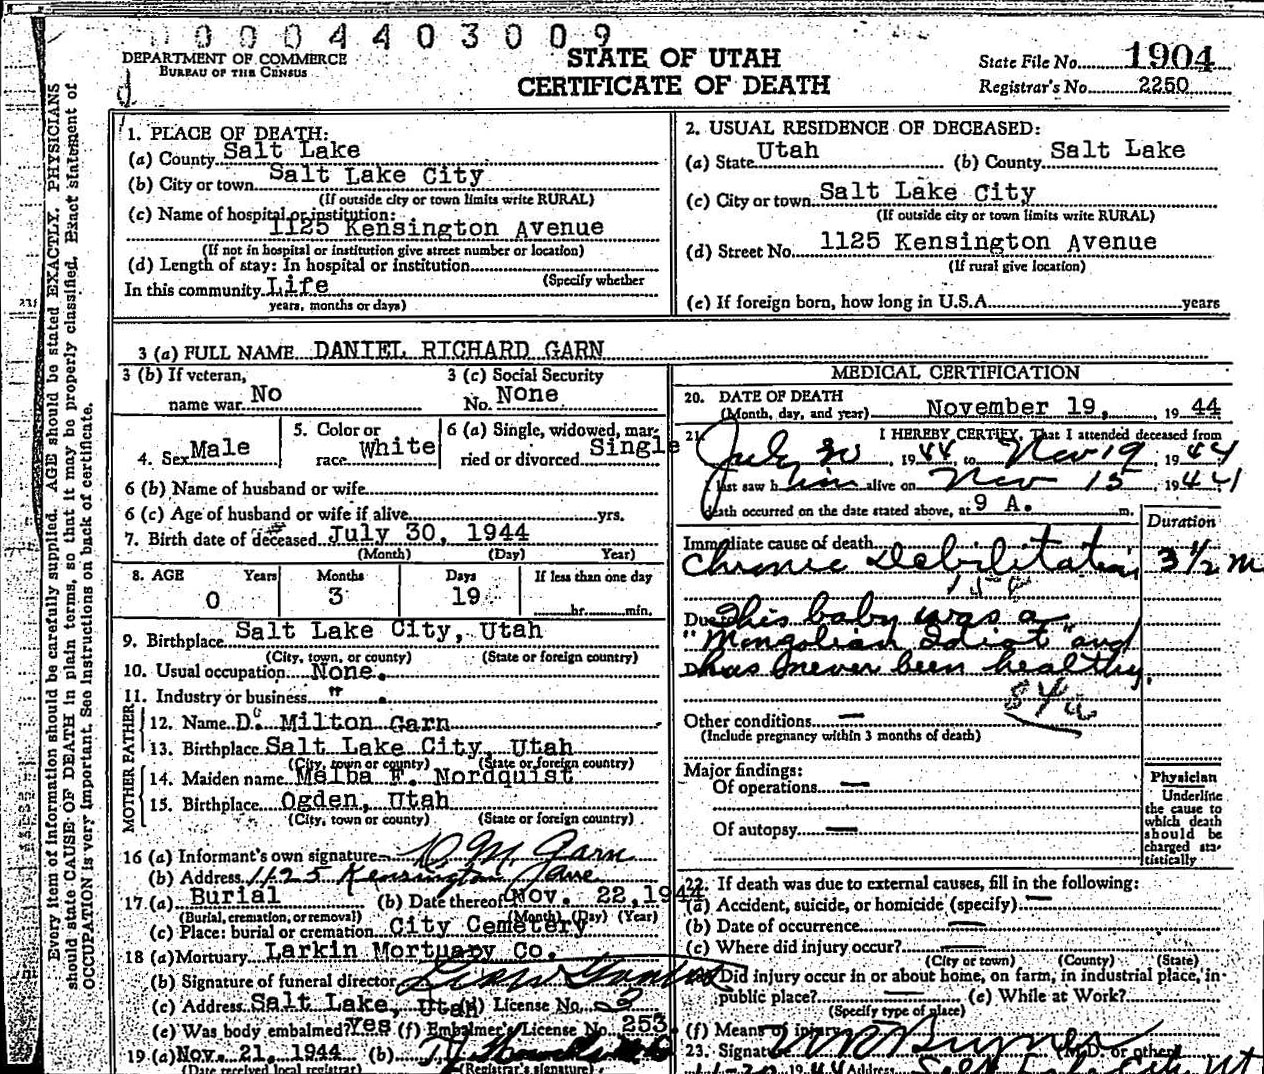 0004403009
DEPARTMENT OF COMMERCE
BUREAU OF THE CENSUS
STATE OF UTAH
CERTIFICATE OF DEATH
State File No. 1904
Registrar's No. 2250
Every item of information should be carefully supplied. AGE should be stated EXACTLY. PHYSICIANS
should state CAUSE OF DEATH in plain terms, so that it may be properly classified. Exact statement of
OCCUPATION is very important. See instructions on back of certificate.
1. PLACE OF DEATH:
(a) County Salt Lake
(b) City or town Salt Lake City
(If outside city or town limits write RURAL)
(c) Name of hospital or institution:
1125 Kensington Avenue
(If not in hospital or institution give street number or location)
(d) Length of stay: In hospital or institution
(Specify whether
In this community Life
years, months or days)
2. USUAL RESIDENCE OF DECEASED:
(a) State Utah (b) County Salt Lake
(c) City or town Salt Lake City
(If outside city or town limits write RURAL)
(d) Street No. 1125 Kensington Avenue
(If rural give location)
(e) If foreign born, how long in U.S.A. years
3 (a) FULL NAME DANIEL RICHARD GARN
3 (b) If veteran,
name war No
3 (c) Social Security
No. None
4. Sex Male
5. Color or
race White
6 (a) Single, widowed, mar-
ried or divorced Single
6 (b) Name of husband or wife
6 (c) Age of husband or wife if alive yrs.
7. Birth date of deceased July 30, 1944
(Month) (Day) Year)
8. AGE Years Months Days If less than one day
0 3 19 hr. min.
9. Birthplace Salt Lake City, Utah
(City, town, or county) (State or foreign country)
10. Usual occupation None.
11. Industry or business " .
FATHER
12. Name D. Milton Garn
13. Birthplace Salt Lake City, Utah
(City, town or county) (State or foreign country)
MOTHER
14. Maiden name Melba F. Nordquist
15. Birthplace Ogden, Utah
(City, town or county) (State or foreign country)
16 (a) Informant's own signature D. M. Garn
(b) Address 1125 Kensington Ave
17. (a) Burial (b) Date thereof Nov. 22, 1944
(Burial, cremation, or removal) (Month) (Day) (Year)
(c) Place: burial or cremation City Cemetery
18 (a) Mortuary Larkin Mortuary Co.
(b) Signature of funeral director
(c) Address Salt Lake, Utah (d) License No. 2
(e) Was body embalmed? Yes (f) Embalmer's License No. 253
19 (a) Nov. 21, 1944 (b)
(Date received local registrar) (Registrar's signature)
MEDICAL CERTIFICATION
20. DATE OF DEATH
(Month, day, and year) November 19, 1944
21. I HEREBY CERTIFY, That I attended deceased from
July 30, 1944 to Nov 19 1944
I last saw him alive on Nov 15 1944
death occurred on the date stated above, at 9 A. m.
Duration
Immediate cause of death
Chronic Debilitation 3 1/2 m
158
Due This baby was a
"Mongolian Idiot" and
has never been healthy.
84a
Other conditions —
(Include pregnancy within 3 months of death)
Major findings:
Of operations —
Of autopsy —
Physician
Underline
the cause to
which death
should be
charged sta-
tistically
22. If death was due to external causes, fill in the following:
(a) Accident, suicide, or homicide (specify) —
(b) Date of occurrence —
(c) Where did injury occur? —
(City or town) (County) (State)
Did injury occur in or about home, on farm, in industrial place, in
public place? — (e) While at Work?
(Specify type of place)
(f) Means of injury
23. Signature (M.D. or other)
11-20 1944 Address Salt Lake City Ut